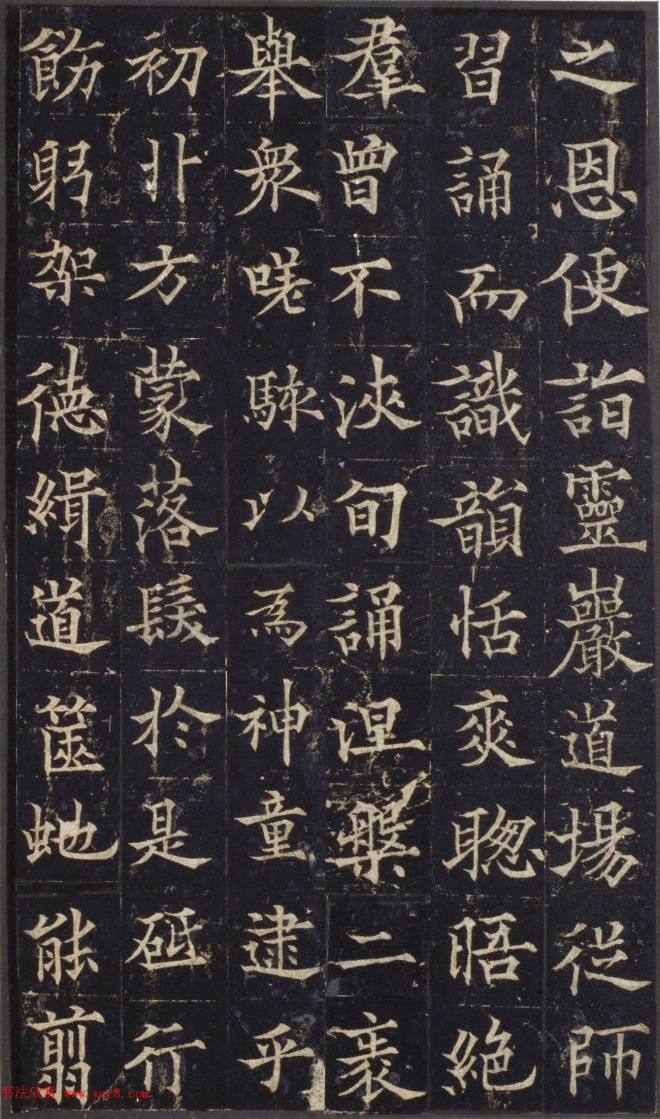 之恩便詣靈巖道場從師
習誦而識韻恬爽聰晤絕
羣曾不浹旬誦涅槃二袠
舉衆嗟駭以為神童逮乎
初卝方蒙落髮於是砥行
飭躬架德緝道篋虵能翦
书法欣赏 www.yac8.com